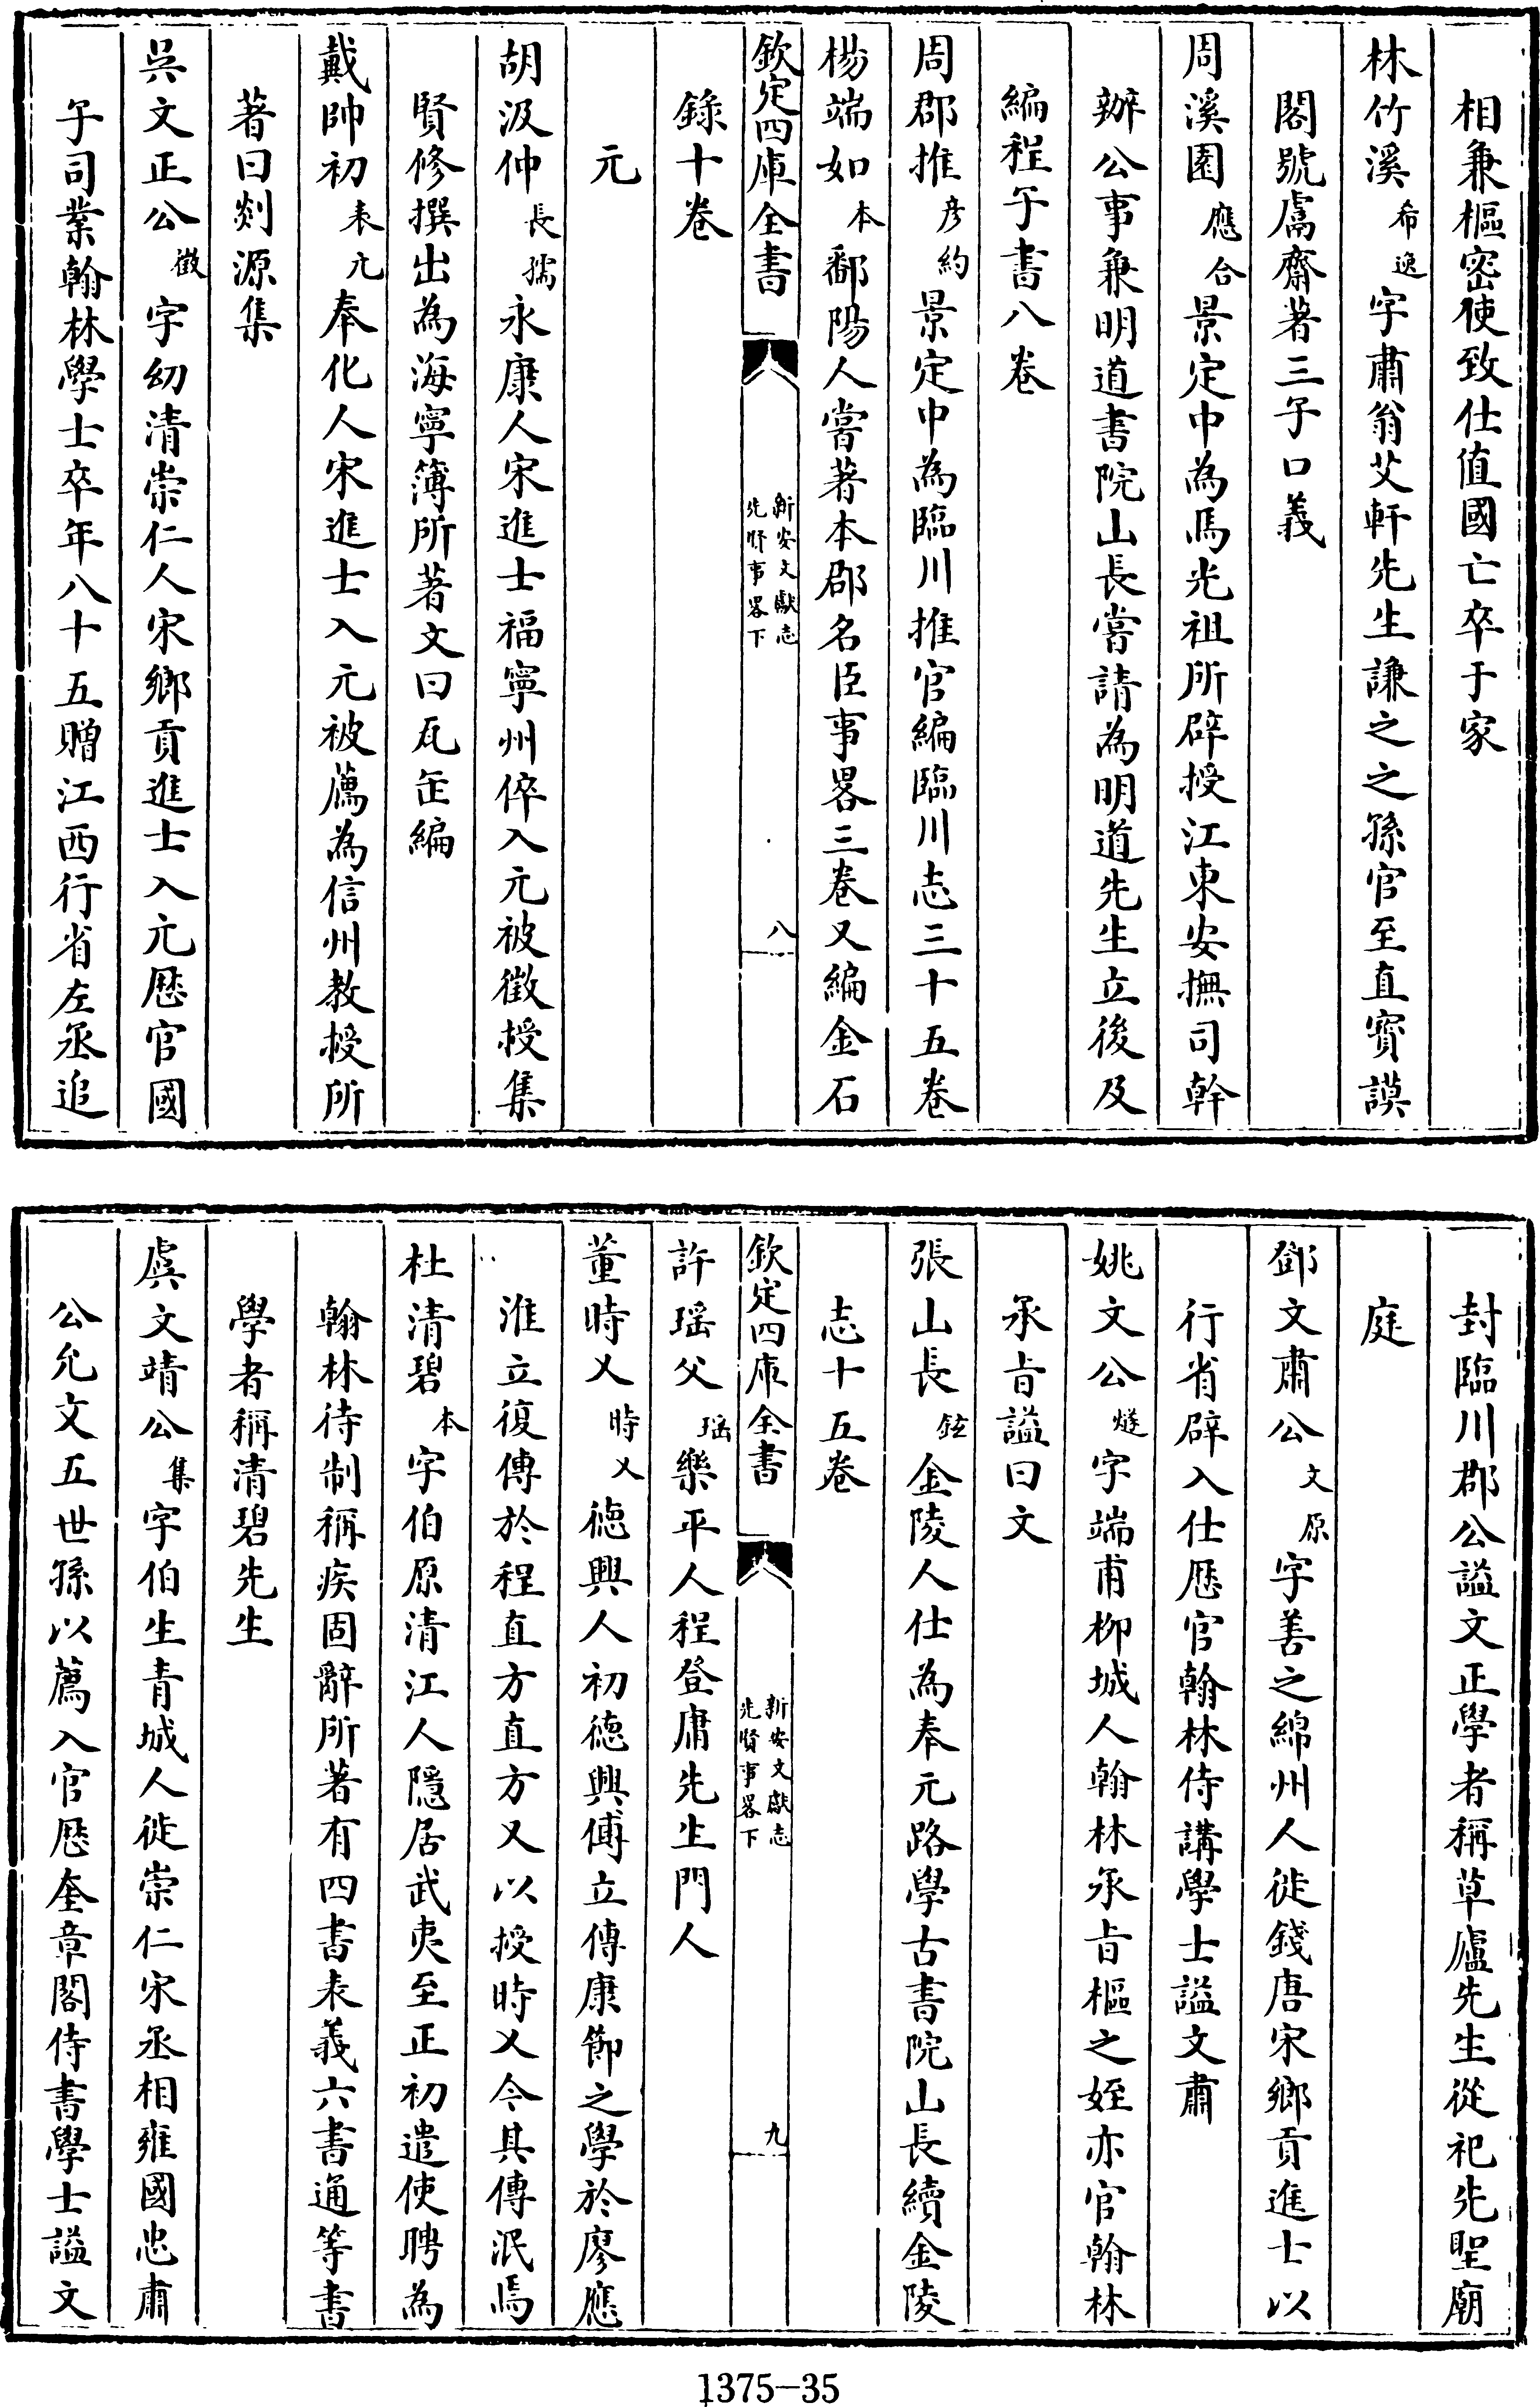 相兼樞密使致仕值國亡卒于家
林竹溪希逸字肅翁艾軒先生謙之之孫官至直寳謨
閣號鬳齋著三子口義
周溪園應合景定中為馬光祖所辟授江東安撫司幹
辦公事兼明道書院山長嘗請為明道先生立後及
編程子書八卷
周郡推彦約景定中為臨川推官編臨川志三十五卷
楊端如本鄱陽人嘗著本郡名臣事畧三卷又編金石
欽定四庫全書
新安文獻志
先賢事畧下
八
錄十卷
元
胡汲仲長孺永康人宋進士福寧州倅入元被徵授集
賢修撰出為海寧簿所著文曰瓦缶編
戴帥初表元奉化人宋進士入元被薦為信州教授所
著曰剡源集
吳文正公徵字幼清崇仁人宋鄉貢進士入元歴官國
子司業翰林學士卒年八十五贈江西行省左丞追
封臨川郡公諡文正學者稱草廬先生從祀先聖廟
庭
鄧文肅公文原字善之綿州人徙錢唐宋鄉貢進士以
行省辟入仕歴官翰林侍講學士諡文肅
姚文公燧字端甫柳城人翰林承旨樞之姪亦官翰林
承旨諡曰文
張山長鉉金陵人仕為奉元路學古書院山長續金陵
志十五卷
欽定四庫全書
新安文獻志
先賢事畧下
九
許瑶父瑶樂平人程登庸先生門人
董時乂時乂德興人初德興傅立傳康節之學於廖應
淮立復傳於程直方直方又以授時乂今其傳泯焉
杜清碧本字伯原清江人隱居武夷至正初遣使聘為
翰林待制稱疾固辭所著有四書表義六書通等書
學者稱清碧先生
虞文靖公集字伯生青城人徙崇仁宋丞相雍國忠肅
公允文五世孫以薦入官歴奎章閣侍書學士諡文
1375-35